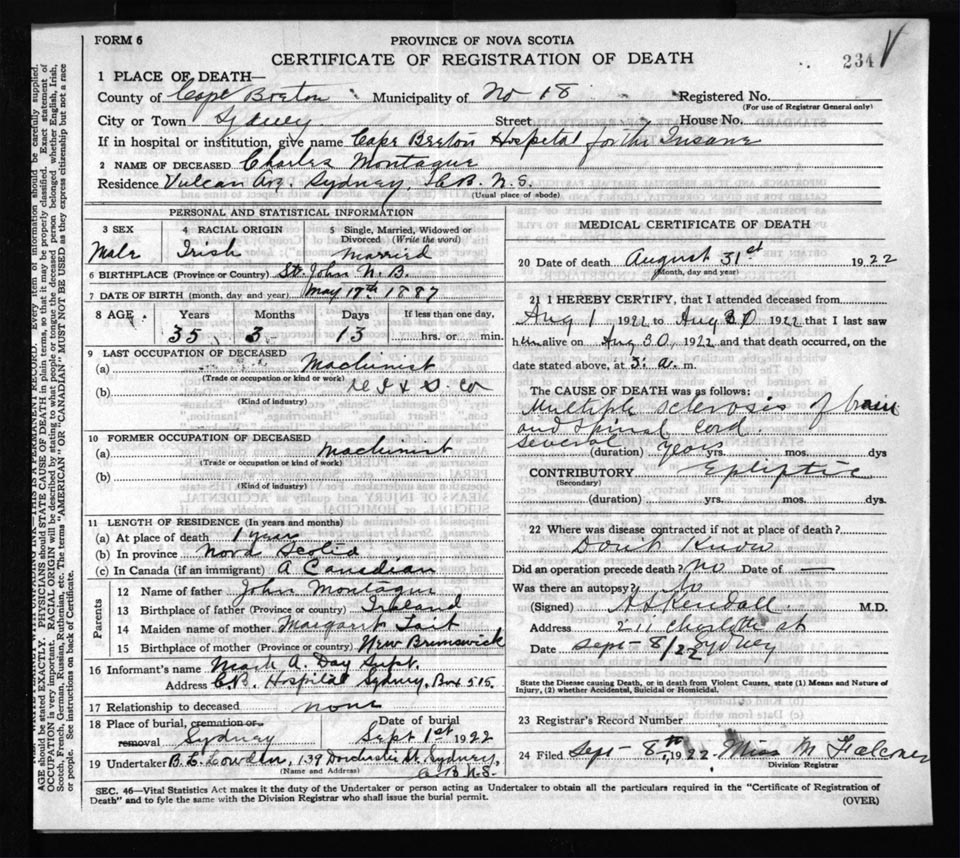 FORM 6
PROVINCE OF NOVA SCOTIA
CERTIFICATE OF REGISTRATION OF DEATH
234
1 PLACE OF DEATH—
County of Cape Breton Municipality of No 18 Registered No.
(For use of Registrar General only)
City or Town Sydney Street House No.
If in hospital or institution, give name Cape Breton Hospital for the Insane
2 NAME OF DECEASED Charles Montague
Residence Vulcan Ave. Sydney, C.B. N.S.
(Usual place of abode)
PERSONAL AND STATISTICAL INFORMATION
3 SEX 4 RACIAL ORIGIN 5 Single, Married, Widowed or Divorced (Write the word)
Male Irish Married
6 BIRTHPLACE (Province or Country) St. John N.B.
7 DATE OF BIRTH (month, day and year) May 17th 1887
8 AGE Years Months Days If less than one day,
35 3 13 hrs. or min.
9 LAST OCCUPATION OF DECEASED
(a) Machinist
(Trade or occupation or kind of work)
(b) & S. Co
(Kind of industry)
10 FORMER OCCUPATION OF DECEASED
(a) Machinist
(Trade or occupation or kind of work)
(b)
(Kind of industry)
11 LENGTH OF RESIDENCE (In years and months)
(a) At place of death 1 year
(b) In province Nova Scotia
(c) In Canada (if an immigrant) A Canadian
Parents
12 Name of father John Montague
13 Birthplace of father (Province or country) Ireland
14 Maiden name of mother Margaret Tait
15 Birthplace of mother (Province or country) New Brunswick
16 Informant's name Mark A. Day Supt.
Address C.B. Hospital Sydney, Box 515.
17 Relationship to deceased none
18 Place of burial, cremation or removal Sydney Date of burial Sept 1st 1922
19 Undertaker B. L. 139 Dorchester St. Sydney,
(Name and Address) C B N.S.
MEDICAL CERTIFICATE OF DEATH
20 Date of death August 31st 1922
(Month, day and year)
21 I HEREBY CERTIFY, that I attended deceased from
Aug 1 1922 to Aug 30 1922 that I last saw
him alive on Aug 30, 1922 and that death occurred, on the
date stated above, at 3. a. m.
The CAUSE OF DEATH was as follows:
Multiple sclerosis of brain
and spinal cord.
several years
(duration) yrs. mos. dys
CONTRIBUTORY Epliptic
(Secondary)
(duration) yrs. mos. dys.
22 Where was disease contracted if not at place of death?
Don't Know
Did an operation precede death? no Date of —
Was there an autopsy? no
(Signed) A S Kendall M.D.
Address 211 Charlotte st
Date Sept - 8/22 Sydney
State the Disease causing Death, or in death from Violent Causes, state (1) Means and Nature of Injury, (2) whether Accidental, Suicidal or Homicidal.
23 Registrar's Record Number
24 Filed Sept - 8th, 1922 Miss M Falconer
Division Registrar
SEC. 46—Vital Statistics Act makes it the duty of the Undertaker or person acting as Undertaker to obtain all the particulars required in the "Certificate of Registration of
Death" and to fyle the same with the Division Registrar who shall issue the burial permit.
(OVER)
THIS IS A PERMANENT RECORD. Every item of information should be carefully supplied.
AGE should be stated EXACTLY. PHYSICIANS should STATE CAUSE OF DEATH in plain terms, so that it may be properly classified. Exact statement of
OCCUPATION is very important. RACIAL ORIGIN will be described by stating to what people or tongue the deceased person belonged whether English, Irish,
Scotch, French, German, Russian, Ruthenian, etc. The terms "AMERICAN" OR "CANADIAN" MUST NOT BE USED as they express citizenship but not a race
or people. See instructions on back of Certificate.